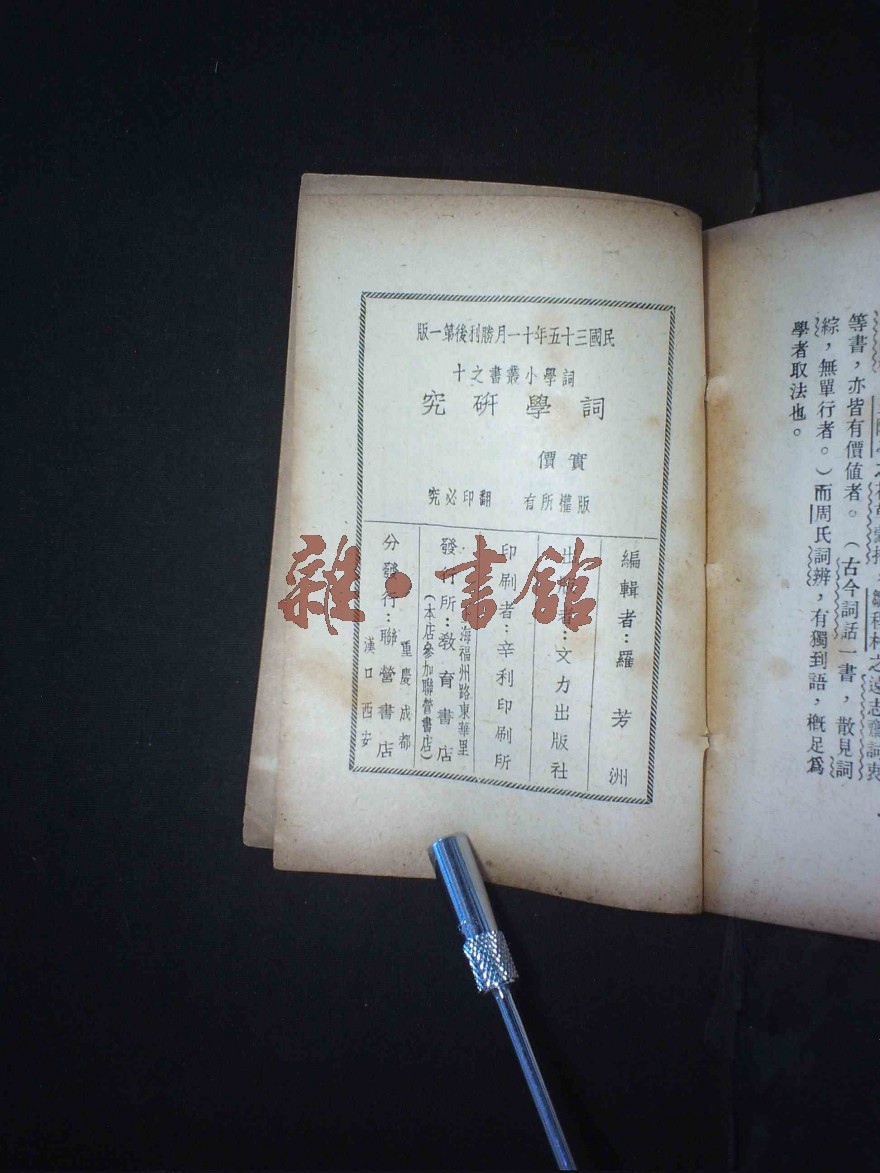 民國三十五年十一月勝利後第一版
詞學小叢書之十
詞學研究
實價
版權所有 翻印必究
編輯者：羅芳洲
出版者：文力出版社
印刷者：辛利印刷所
海福州路東華里
發行所：教育書店
（本店參加聯營書店）
重慶成都
分發行：聯營書店
漢口西安
等書，亦皆有價值者。（古今詞話一書，散見詞
綜，無單行者。）而周氏詞辨，有獨到語，概足爲
學者取法也。
雜·書館